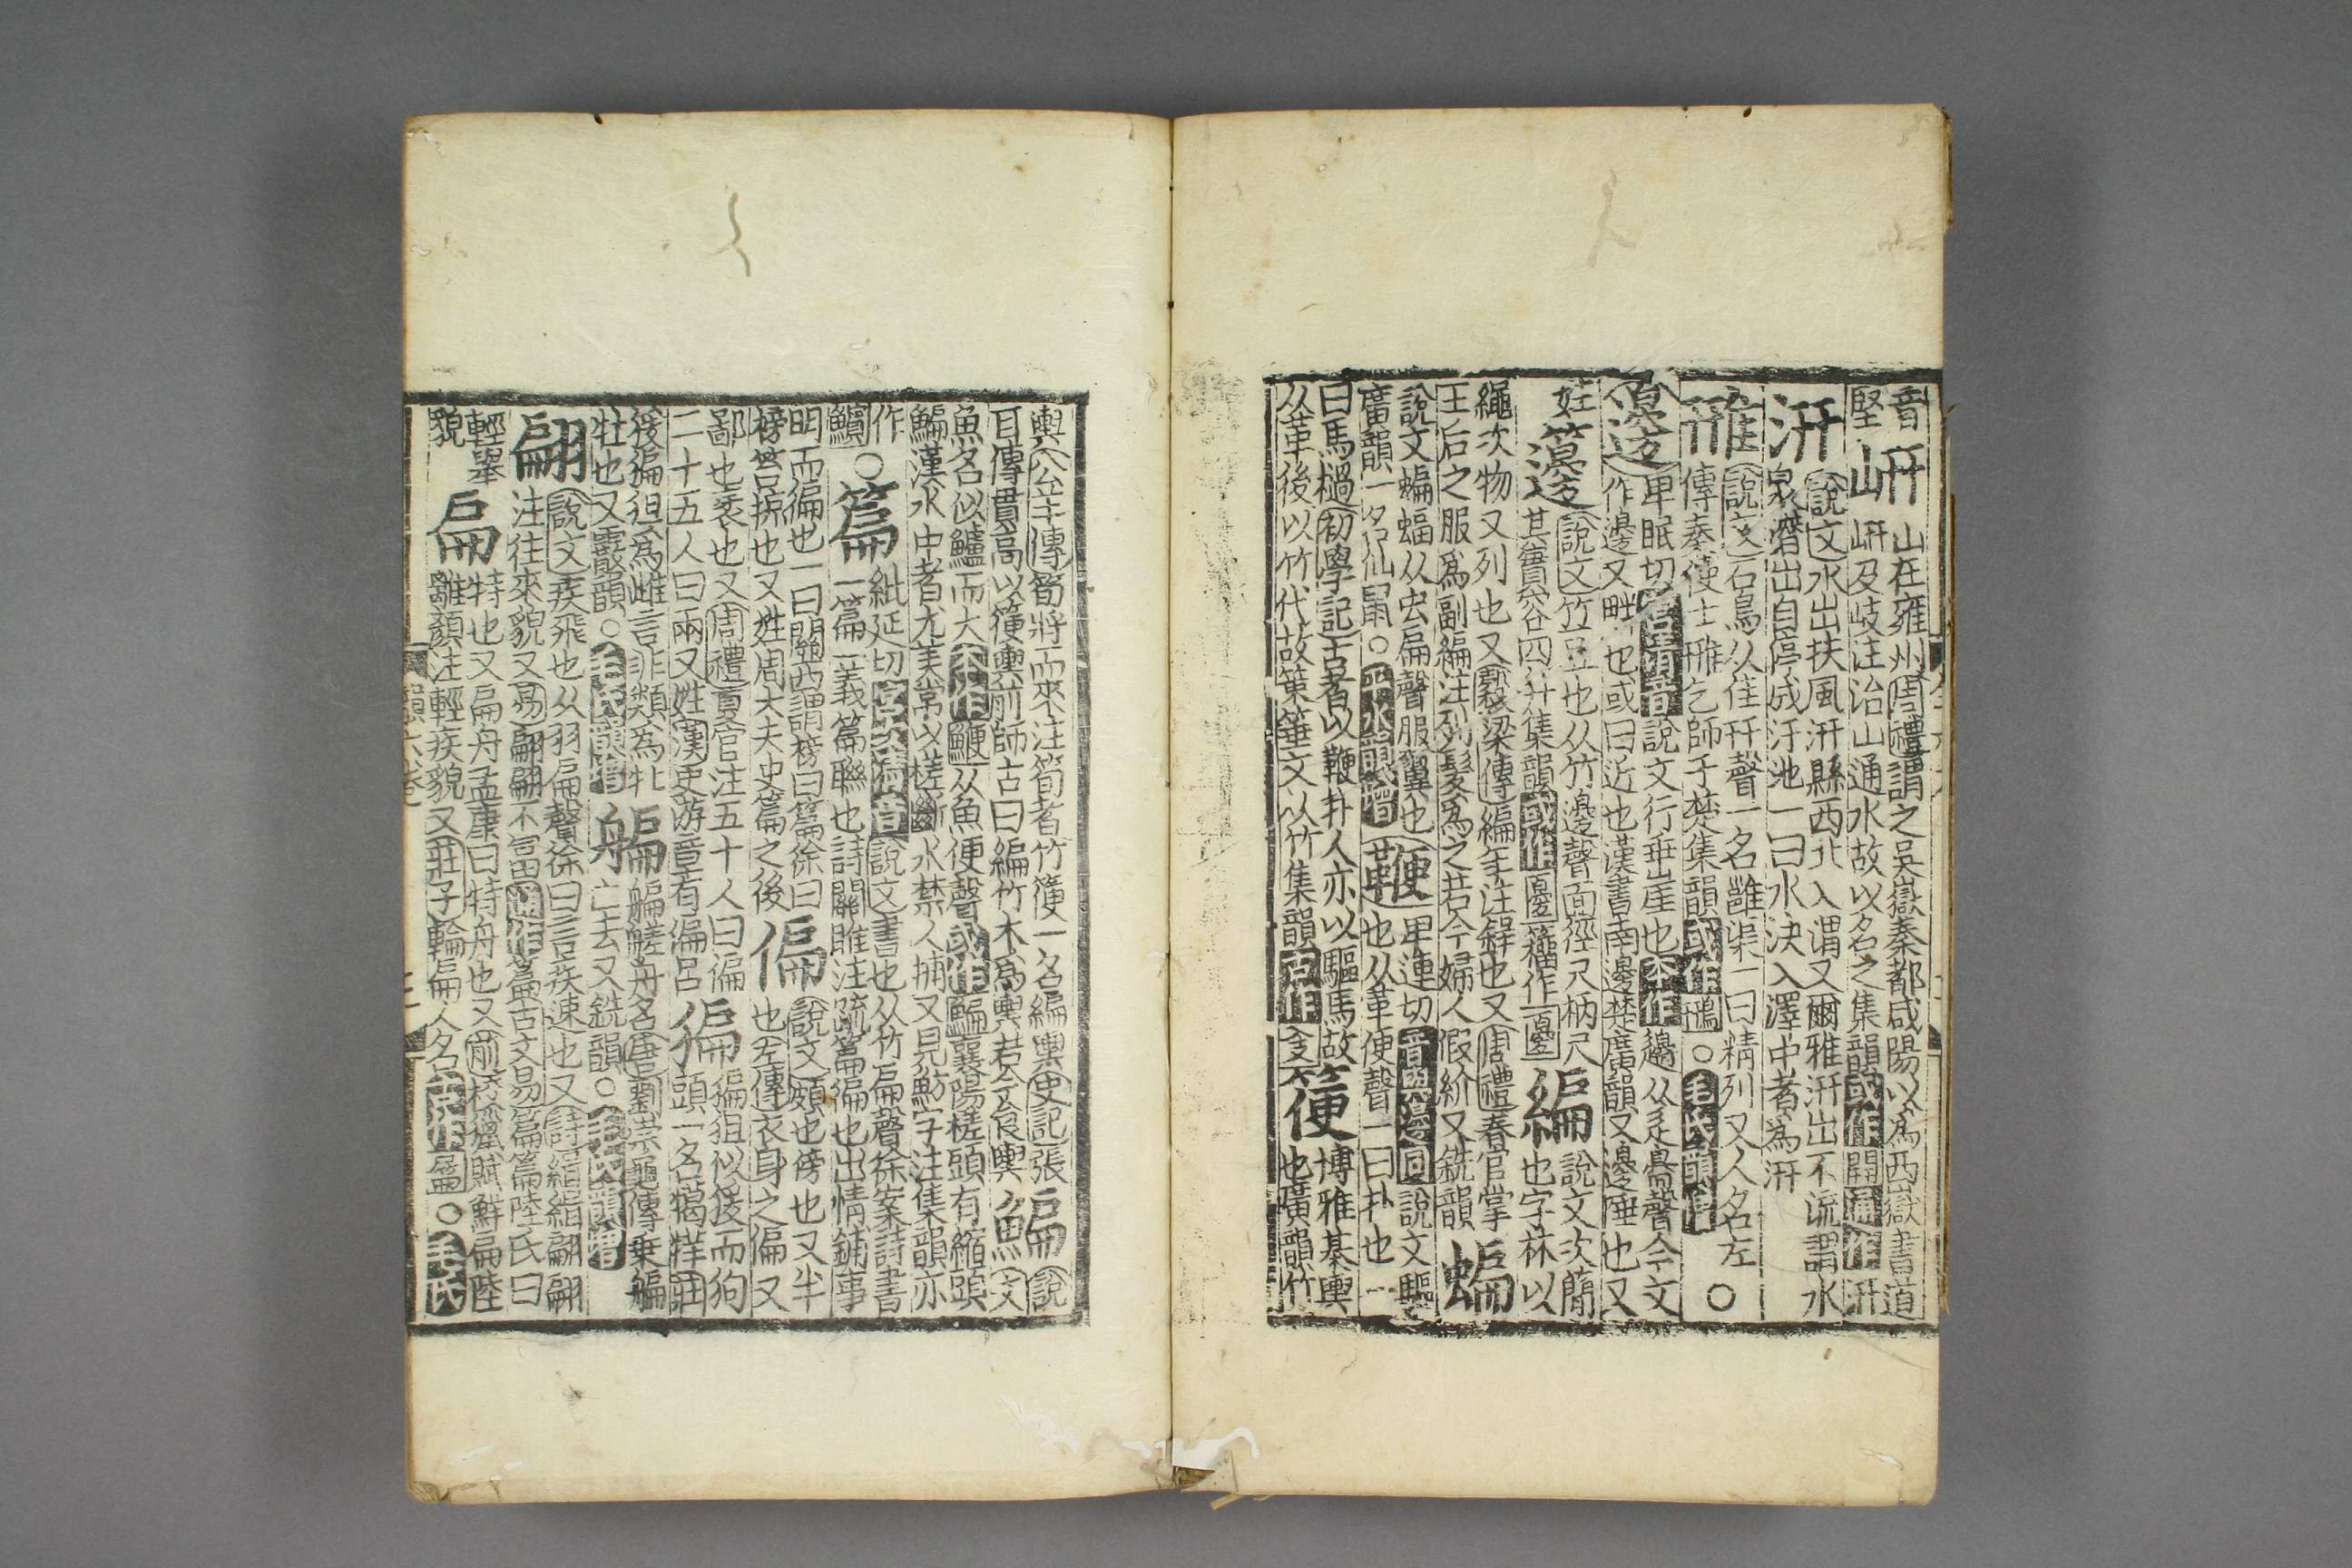 音岍山在雍州周禮謂之吳嶽秦都咸陽以為西嶽書道
堅岍及岐注治山通水故以名之集韻或作開通作汧
汧說文水出扶風汧縣西北入渭又爾雅汧出不流謂水
泉潛出自停成汙池一曰水決入澤中者為汧
雃說文石鳥从隹幵聲一名雝渠一曰精列又人名左
傳秦使士雃乞師于楚集韻或作鳽○毛氏韻增 ○
邊卑眠切宮清音說文行垂崖也本作邊从辵臱聲今文
作邊又畔也或曰近也漢書南邊楚廣韻又邊陲也又
姓籩說文竹豆也从竹邊聲面徑尺柄尺
其實容四升集韻或作籀作編說文次簡
也字林以
繩次物又列也又穀梁傳編年注錄也又周禮春官掌
王后之服為副編注列髮為之若今婦人假紒又銑韻蝙
說文蝙蝠从虫扁聲服翼也
廣韻一名仙鼠○平水韻增鞭卑連切音與邊同說文驅
也从革便聲一曰扑也一
曰馬檛初學記古者以鞭扑人亦以驅馬故
从革後以竹代故策箠文从竹集韻古作箯博雅綦輿
也廣韻竹
輿公羊傳筍將而來注筍者竹箯一名編輿史記張
耳傳貫高以箯輿前師古曰編竹木為輿若今食輿鯿說
文
魚名似鱸而大本作鯾从魚便聲或作鯿襄陽槎頭有縮項
鯿漢水中者尤美常以槎斷水禁人捕又見魴字注集韻亦
作
○篇紕延切宮次清音說文書也从竹扁聲徐案詩書
一篇一義篇聯也詩關雎注疏篇徧也出情鋪事
明而徧也一曰關西謂榜曰篇徐曰
榜笞掠也又姓周大夫史篇之後偏說文頗也傍也又半
也左傳衣身之偏又
鄙也褻也又周禮夏官注五十人曰偏
二十五人曰兩又姓漢史游章有偏呂猵猵狙似猨而狗
頭一名獦牂莊
猨猵狙為雌言非類為牝
牡也又霰韻○毛氏韻增艑艑艖舟名唐劉崇龜傳乘艑
亡去又銑韻○毛氏韻增
翩說文疾飛也从羽扁聲徐曰言疾速也又詩緝緝翩翩
注往來貌又易翩翩不富通作篇古文易篇篇陸氏曰
輕舉
貌扁特也又扁舟孟康曰特舟也又前校獵賦鮮扁陸
離顏注輕疾貌又莊子輪扁人名亦作○毛氏